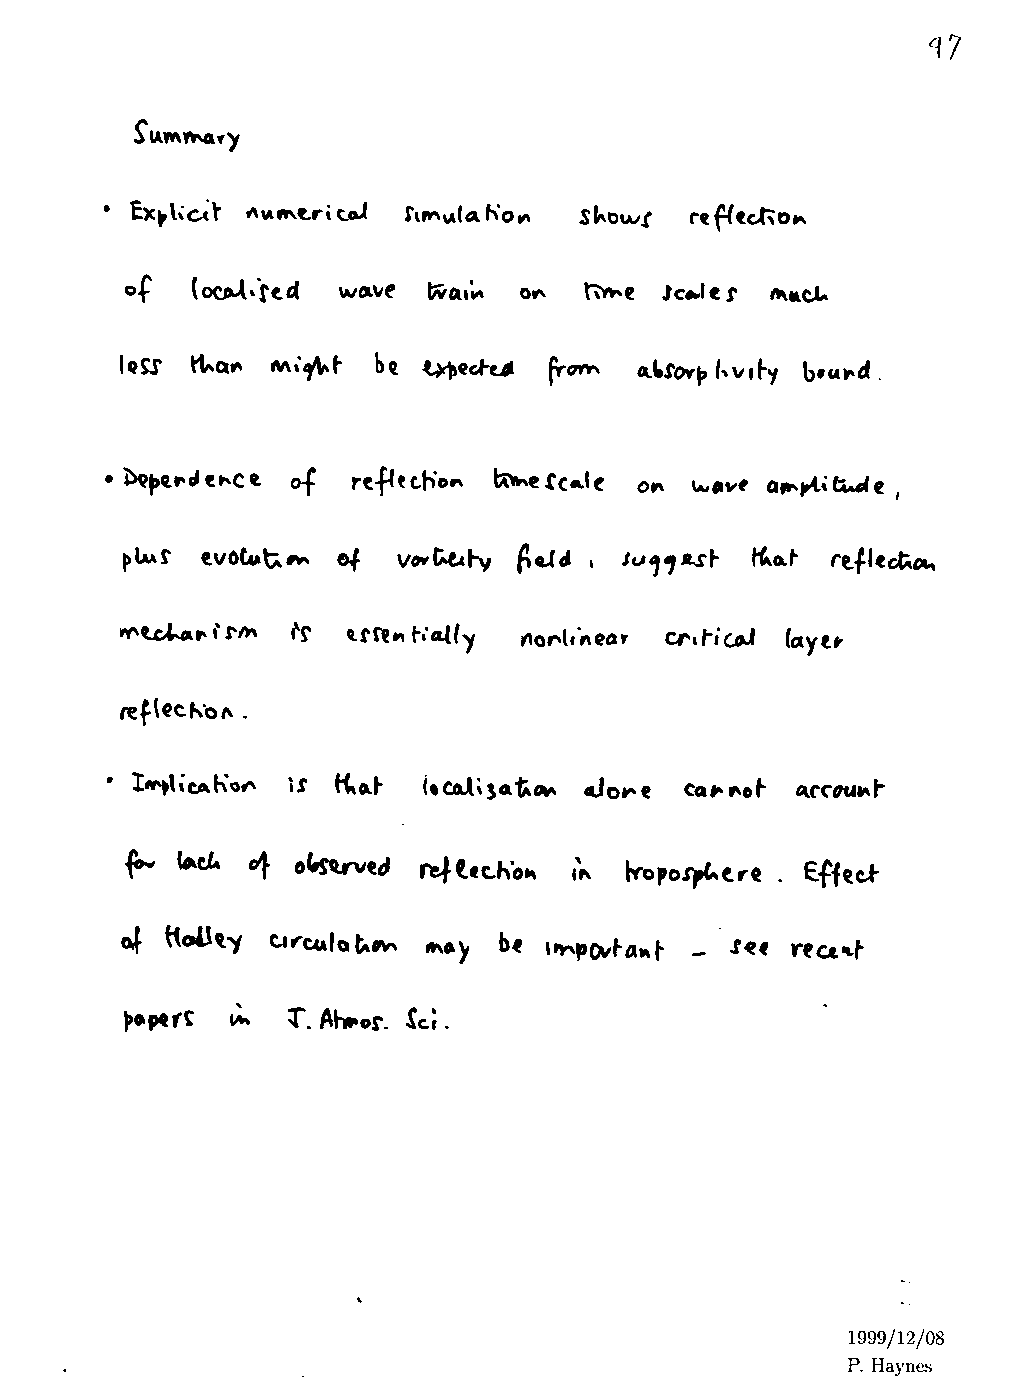 97
Summary
• Explicit numerical simulation shows reflection
of localised wave train on time scales much
less than might be expected from absorptivity bound.
• Dependence of reflection timescale on wave amplitude,
plus evolution of vorticity field, suggest that reflection
mechanism is essentially nonlinear critical layer
reflection.
• Implication is that localization alone cannot account
for lack of observed reflection in troposphere. Effect
of Hadley circulation may be important – see recent
papers in J. Atmos. Sci.
1999/12/08
P. Haynes